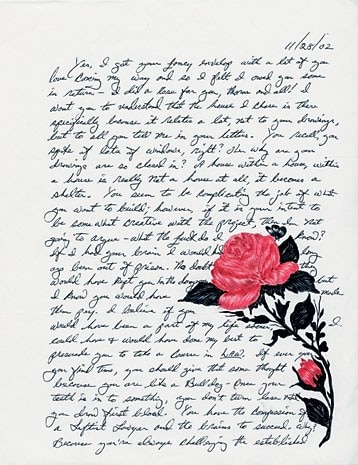 11/28/02
Yes, I got your fancy envelop with a lot of your
love coming my way and so I felt I owed you some
in return – I did a rose for you, thorns and all! I
want you to understand that the house I chose is there
specifically because it relates a lot, not to your drawings,
but to all you tell me in your letters. You recall, you
spoke of lots of windows, right? So why are your
drawings are so closed in? A house within a house, within
a house is really not a house at all, it becomes a
shelter. You seem to be complicating the job of what
you want to build; however, if it is your intent to
be somewhat creative with the project, then I'm not
going to argue – what the fuck do I know?
If I had your brain I would have been long
ago been out of prison. No doubt they
would have kept you in the but
I know you would have made
them pay. I believe if you
would have been a part of my life I
could have & would have done my best to
persuade you to take a course in LAW. If ever you
you find time, you should give that some thought
because you are like a Bulldog – once your
teeth is in to something, you don't turn loose until
you draw first blood. You have the compassion of
a Leftist Lawyer and the brains to succeed. Why?
Because you're always challenging the established